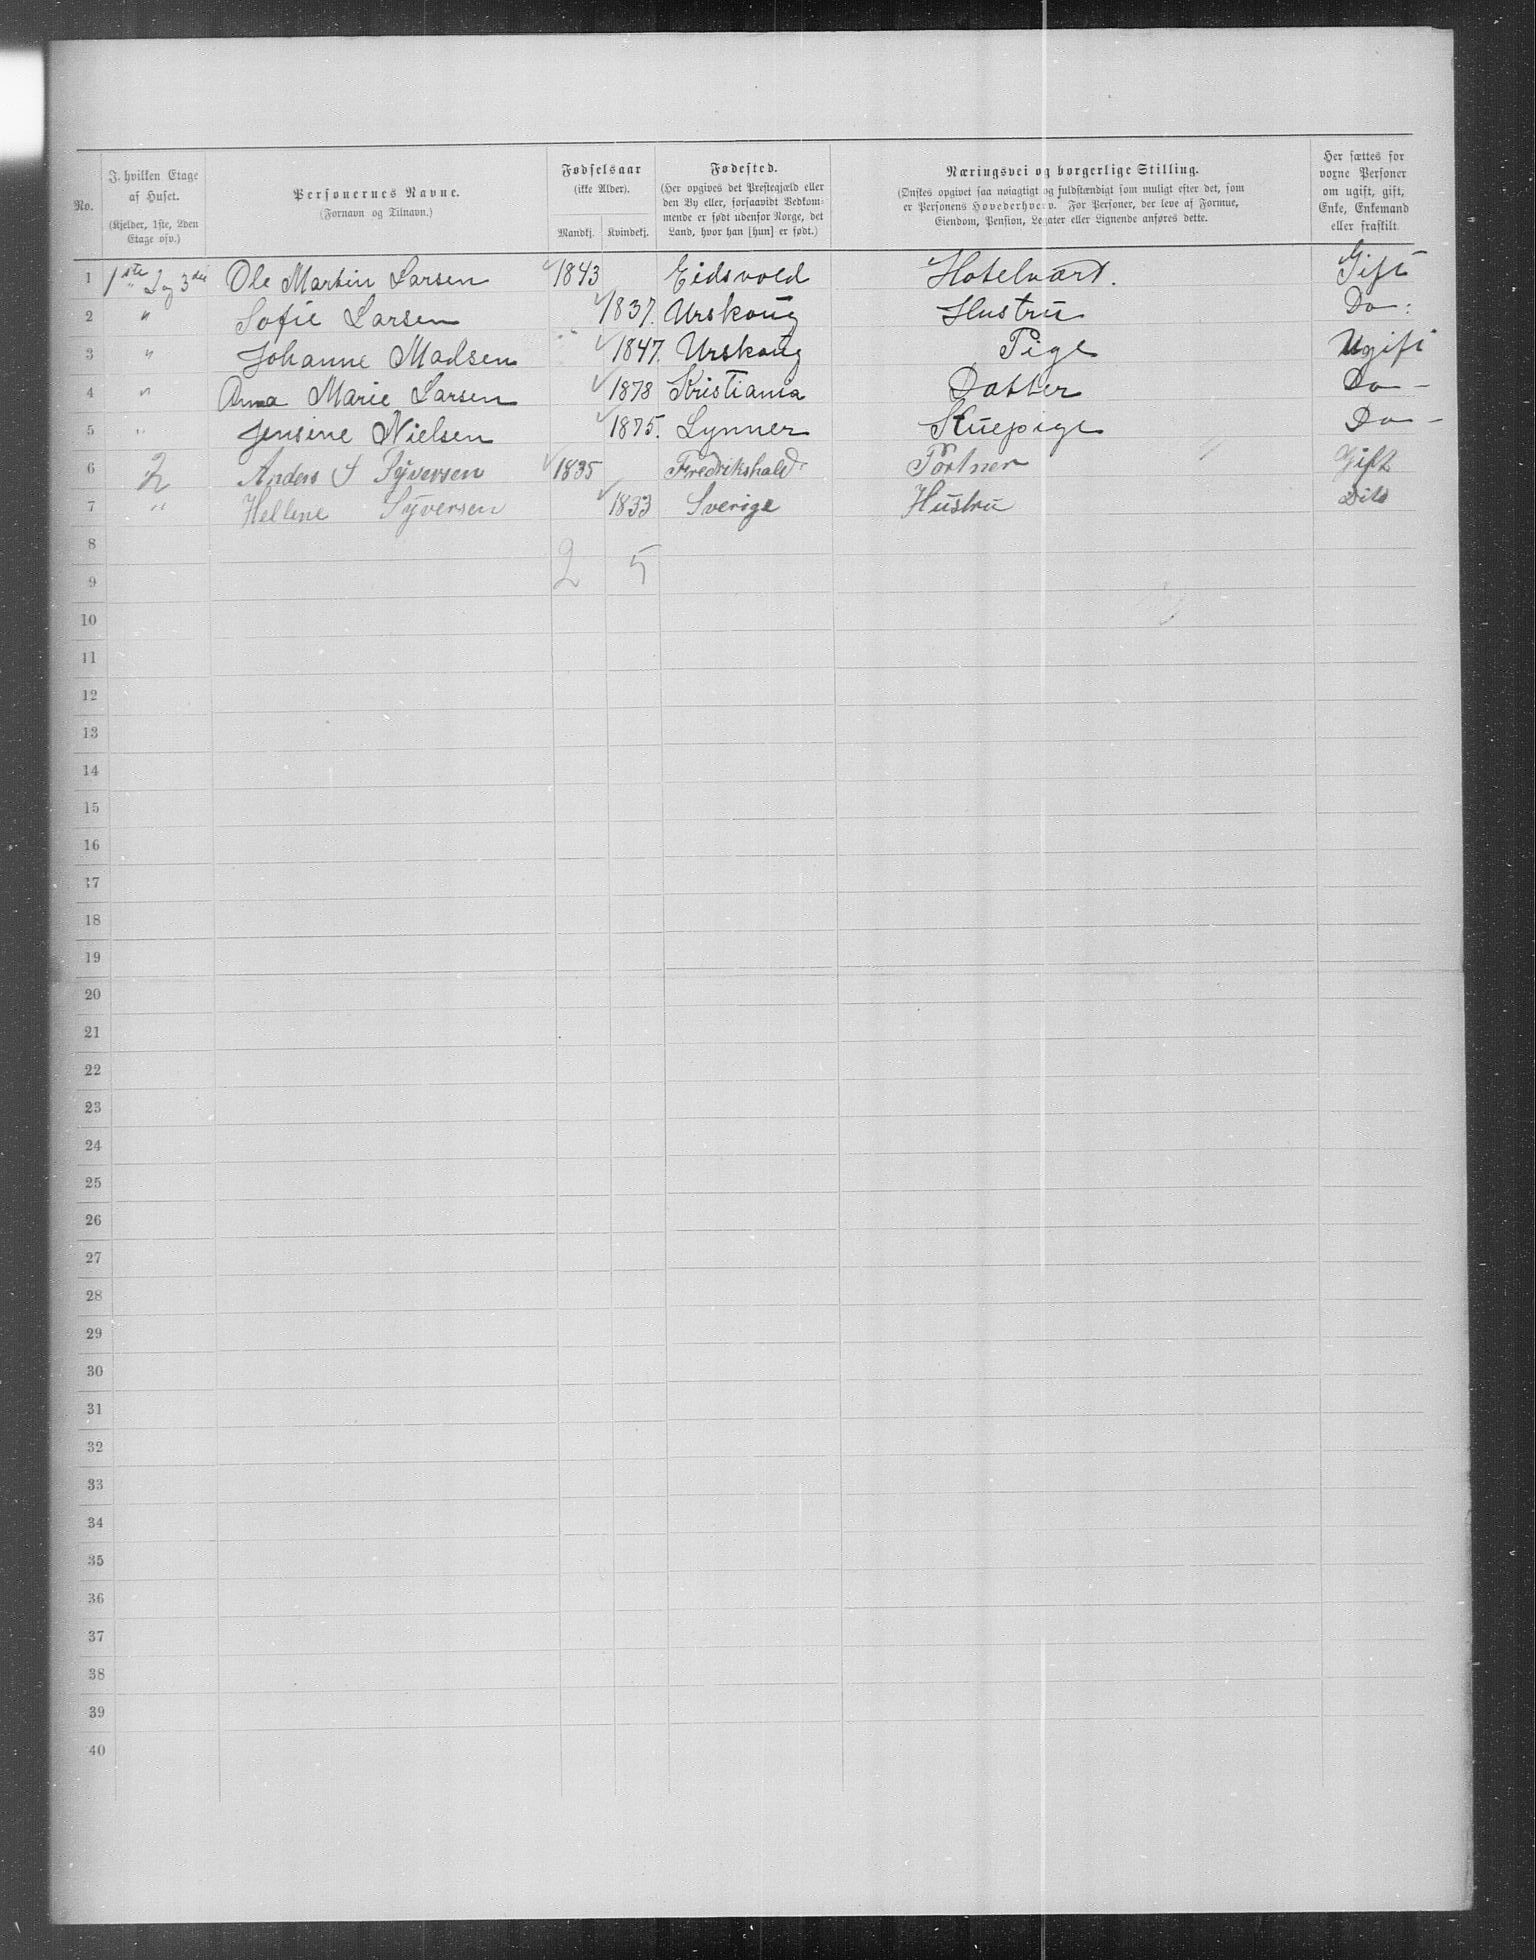 No. | I hvilken Etage af Huset. (Kjelder, 1ste, 2den Etage osv.) | Personernes Navne. (Fornavn og Tilnavn.) | Fødselsaar (ikke Alder). Mandkj. | Kvindekj. | Fødested. (Her opgives det Præstegjæld eller den By eller, forsaavidt Vedkommende er født udenfor Norge, det Land, hvor han [hun] er født.) | Næringsvei og borgerlige Stilling. (Ønskes opgivet saa nøiagtigt og fuldstændigt som muligt efter det, som er Personens Hovederhverv. For Personer, der leve af Formue, Eiendom, Pension, Legater eller Lignende anføres dette.) | Her sættes for voxne Personer om ugift, gift, Enke, Enkemand eller fraskilt.
1 | 1ste 2 og 3die | Ole Martin Larsen | 1843 | | Eidsvold | Hotelvært. | Gift
2 | " | Sofie Larsen | | 1837. | Urskoug | Hustru | Do :
3 | " | Johanne Madsen | | 1847. | Urskoug | Pige | Ugift
4 | " | Anna Marie Larsen | | 1878 | Kristiania | Datter | Do —
5 | " | Jensine Nielsen | | 1875. | Lynner | Stuepige | Do —
6 | 2 | Anders S Syversen | 1835 | | Fredrikshald | Portner | Gift
7 | " | Hellene Syversen | | 1833 | Sverige | Hustru | Dito
8
9 | | | 2 | 5
10
11
12
13
14
15
16
17
18
19
20
21
22
23
24
25
26
27
28
29
30
31
32
33
34
35
36
37
38
39
40